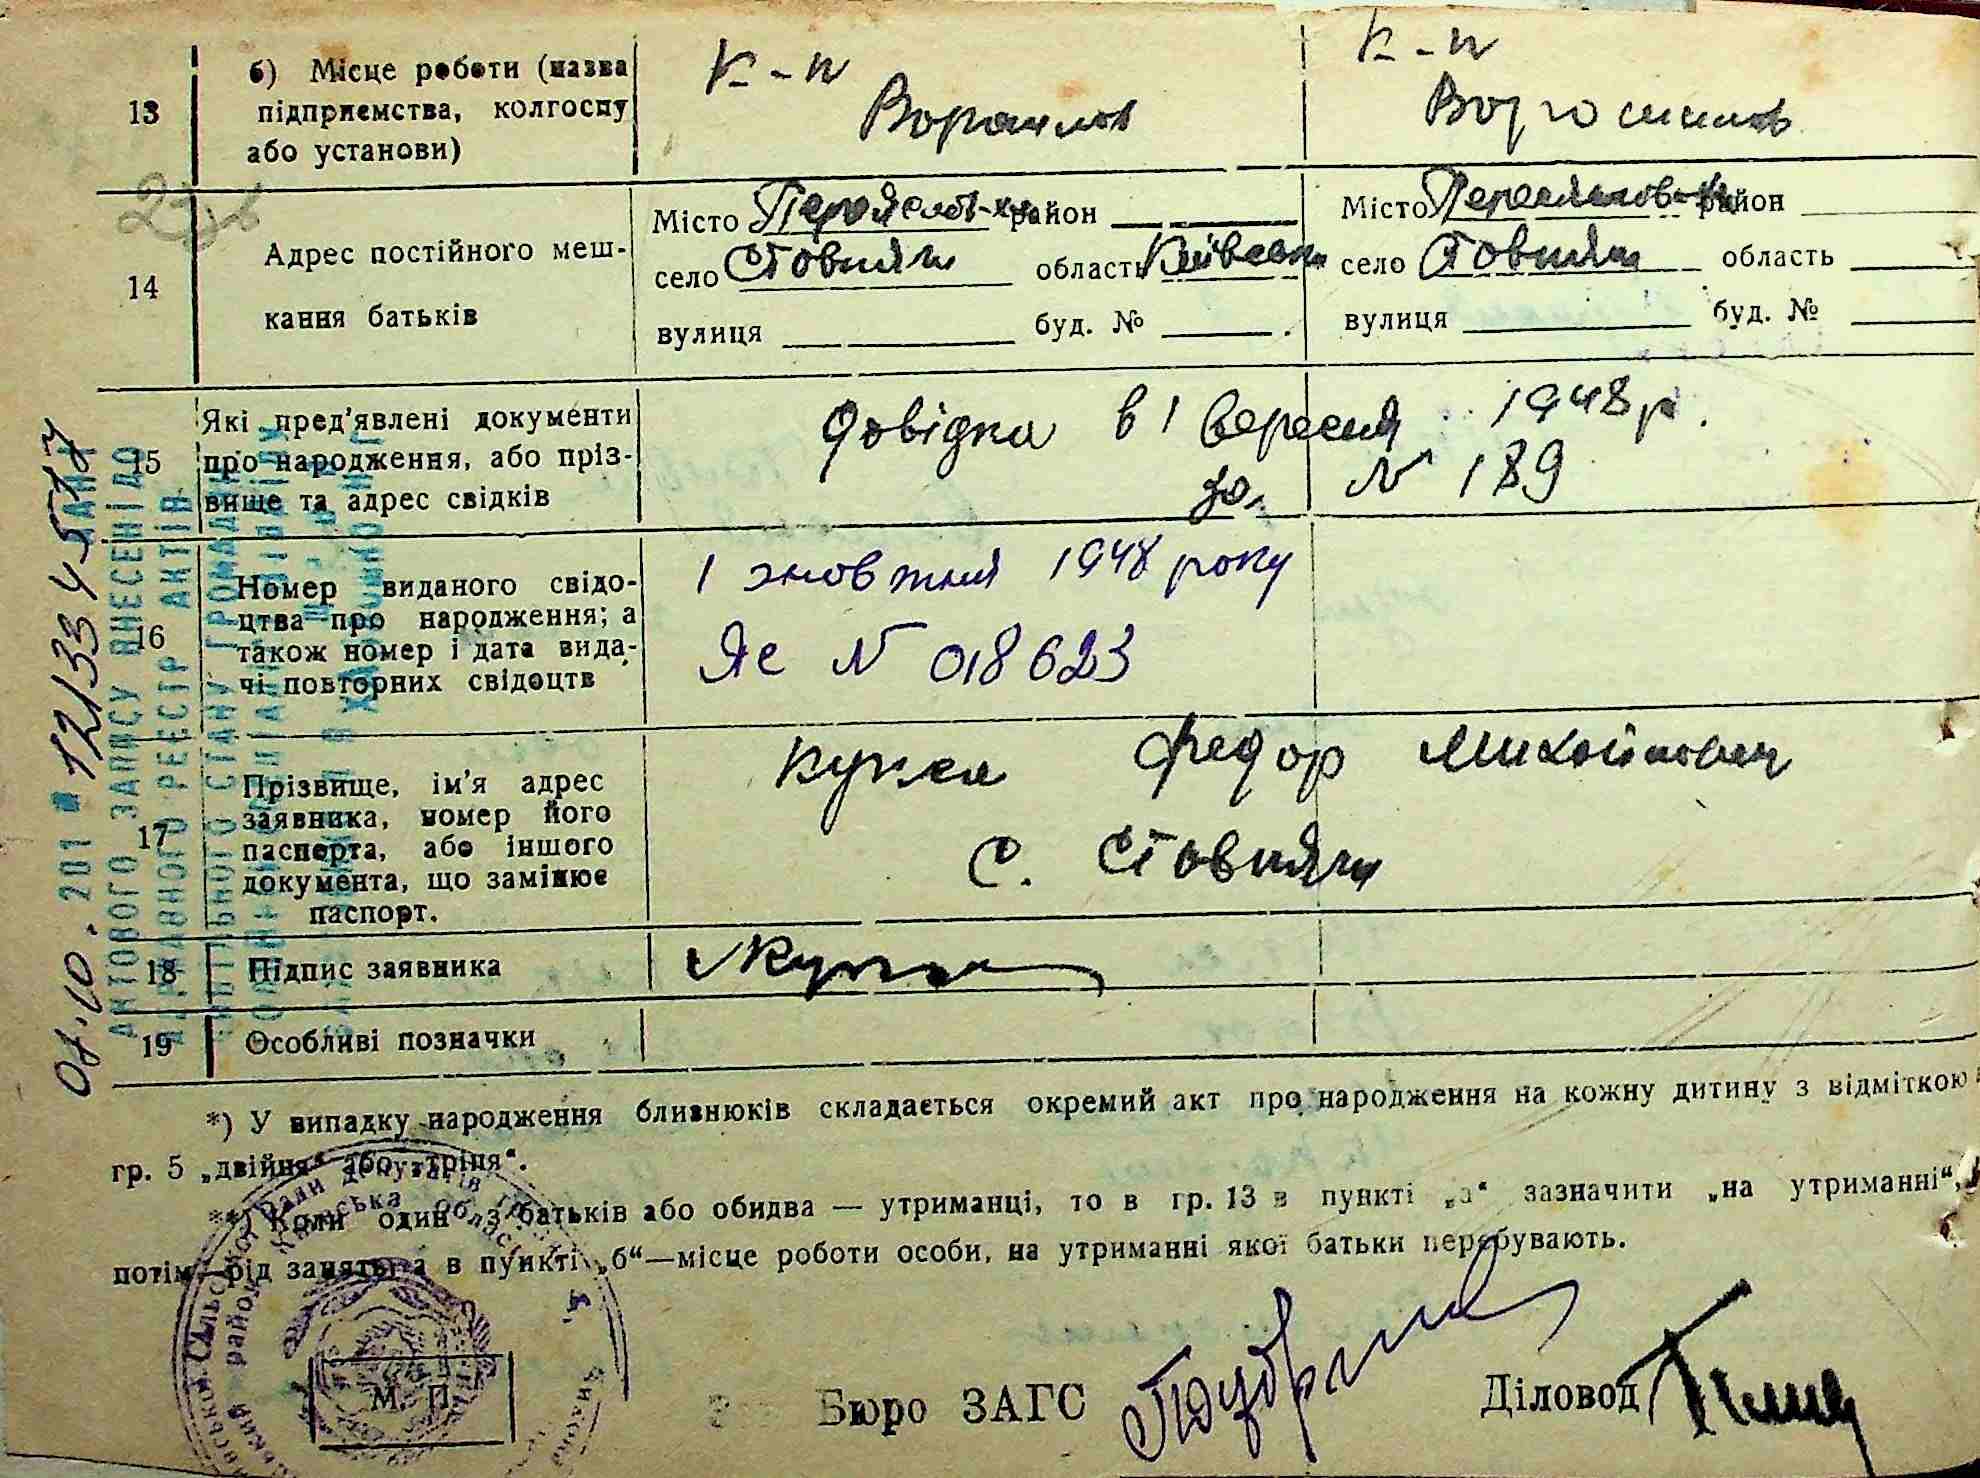 13
б) Місце роботи (назва
підприємства, колгоспу
або установи)
К-п
Ворошилов
К-п
Ворошилов
14
Адрес постійного меш-
кання батьків
Місто Переяслов-Х район
село Стовпяги область Київська
вулиця буд. №
Місто Переяславов-Х район
село Стовпяги область
вулиця буд. №
15
Які пред'явлені документи
про народження, або пріз-
вище та адрес свідків
Довідка в 1 вересня 1948 р.
за № 189
16
Номер виданого свідо-
цтва про народження; а
також номер і дата вида-
чі повторних свідоцтв
1 жовтня 1948 року
ЯС № 018623
17
Прізвище, ім'я адрес
заявника, номер його
паспорта, або іншого
документа, що замінює
паспорт.
Кукса Федор Михойлович
С. Стовпяги
18
Підпис заявника
19
Особливі позначки
*) У випадку народження близнюків складається окремий акт про народження на кожну дитину з відміткою в
гр. 5 „двійня" або „трійня".
**) Коли один з батьків або обидва — утриманці, то в гр. 13 в пункті „а" зазначити „на утриманні",
потім—рід заняття, а в пункті „б"—місце роботи особи, на утриманні якої батьки перебувають.
М. П.
Зав. Бюро ЗАГС
Діловод
АКТОВОГО ЗАПИСУ ВНЕСЕНІ ДО
ДЕРЖАВНОГО РЕЄСТРУ АКТІВ
ЦИВІЛЬНОГО СТАНУ ГРОМАДЯН